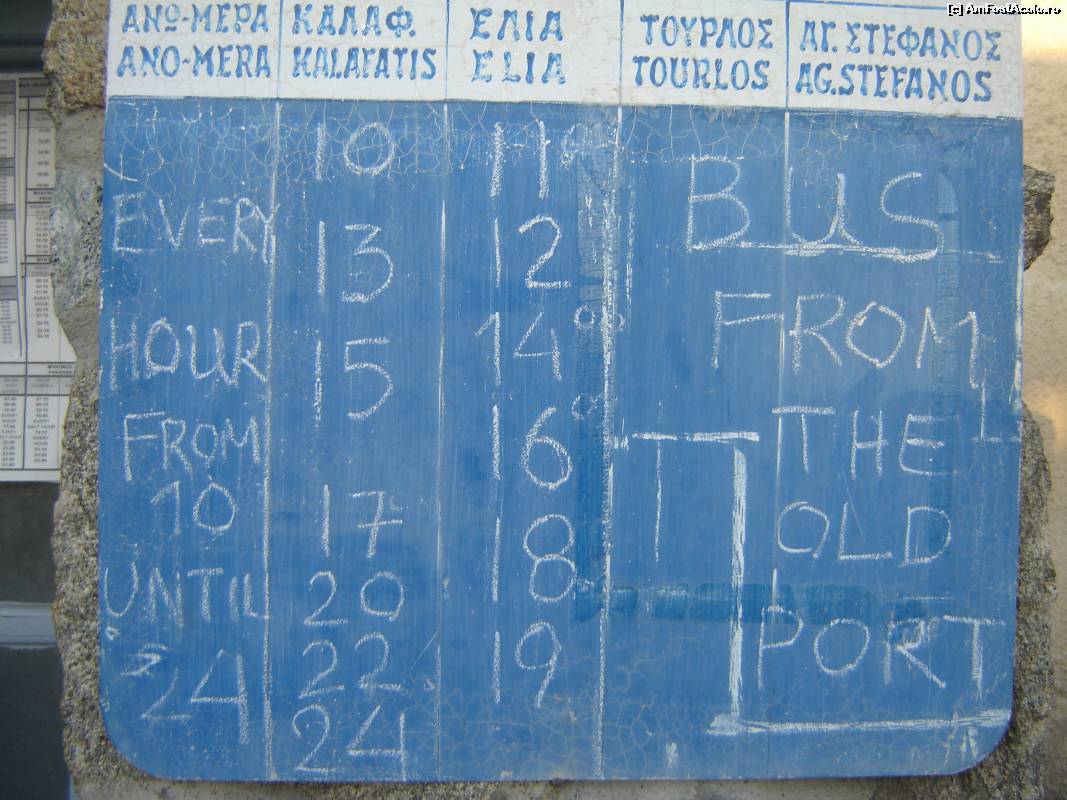 [c] AmFostAcolo.ro
ΑΝΩ-ΜΕΡΑ
ANO-MERA
ΚΑΛΑΦ.
KALAFATIS
ΕΛΙΑ
ELIA
ΤΟΥΡΛΟΣ
TOURLOS
ΑΓ. ΣΤΕΦΑΝΟΣ
AG. STEFANOS
EVERY
HOUR
FROM
10
UNTIL
24
10
13
15
17
20
22
24
11
12
14
16
18
19
BUS
FROM
THE
OLD
PORT